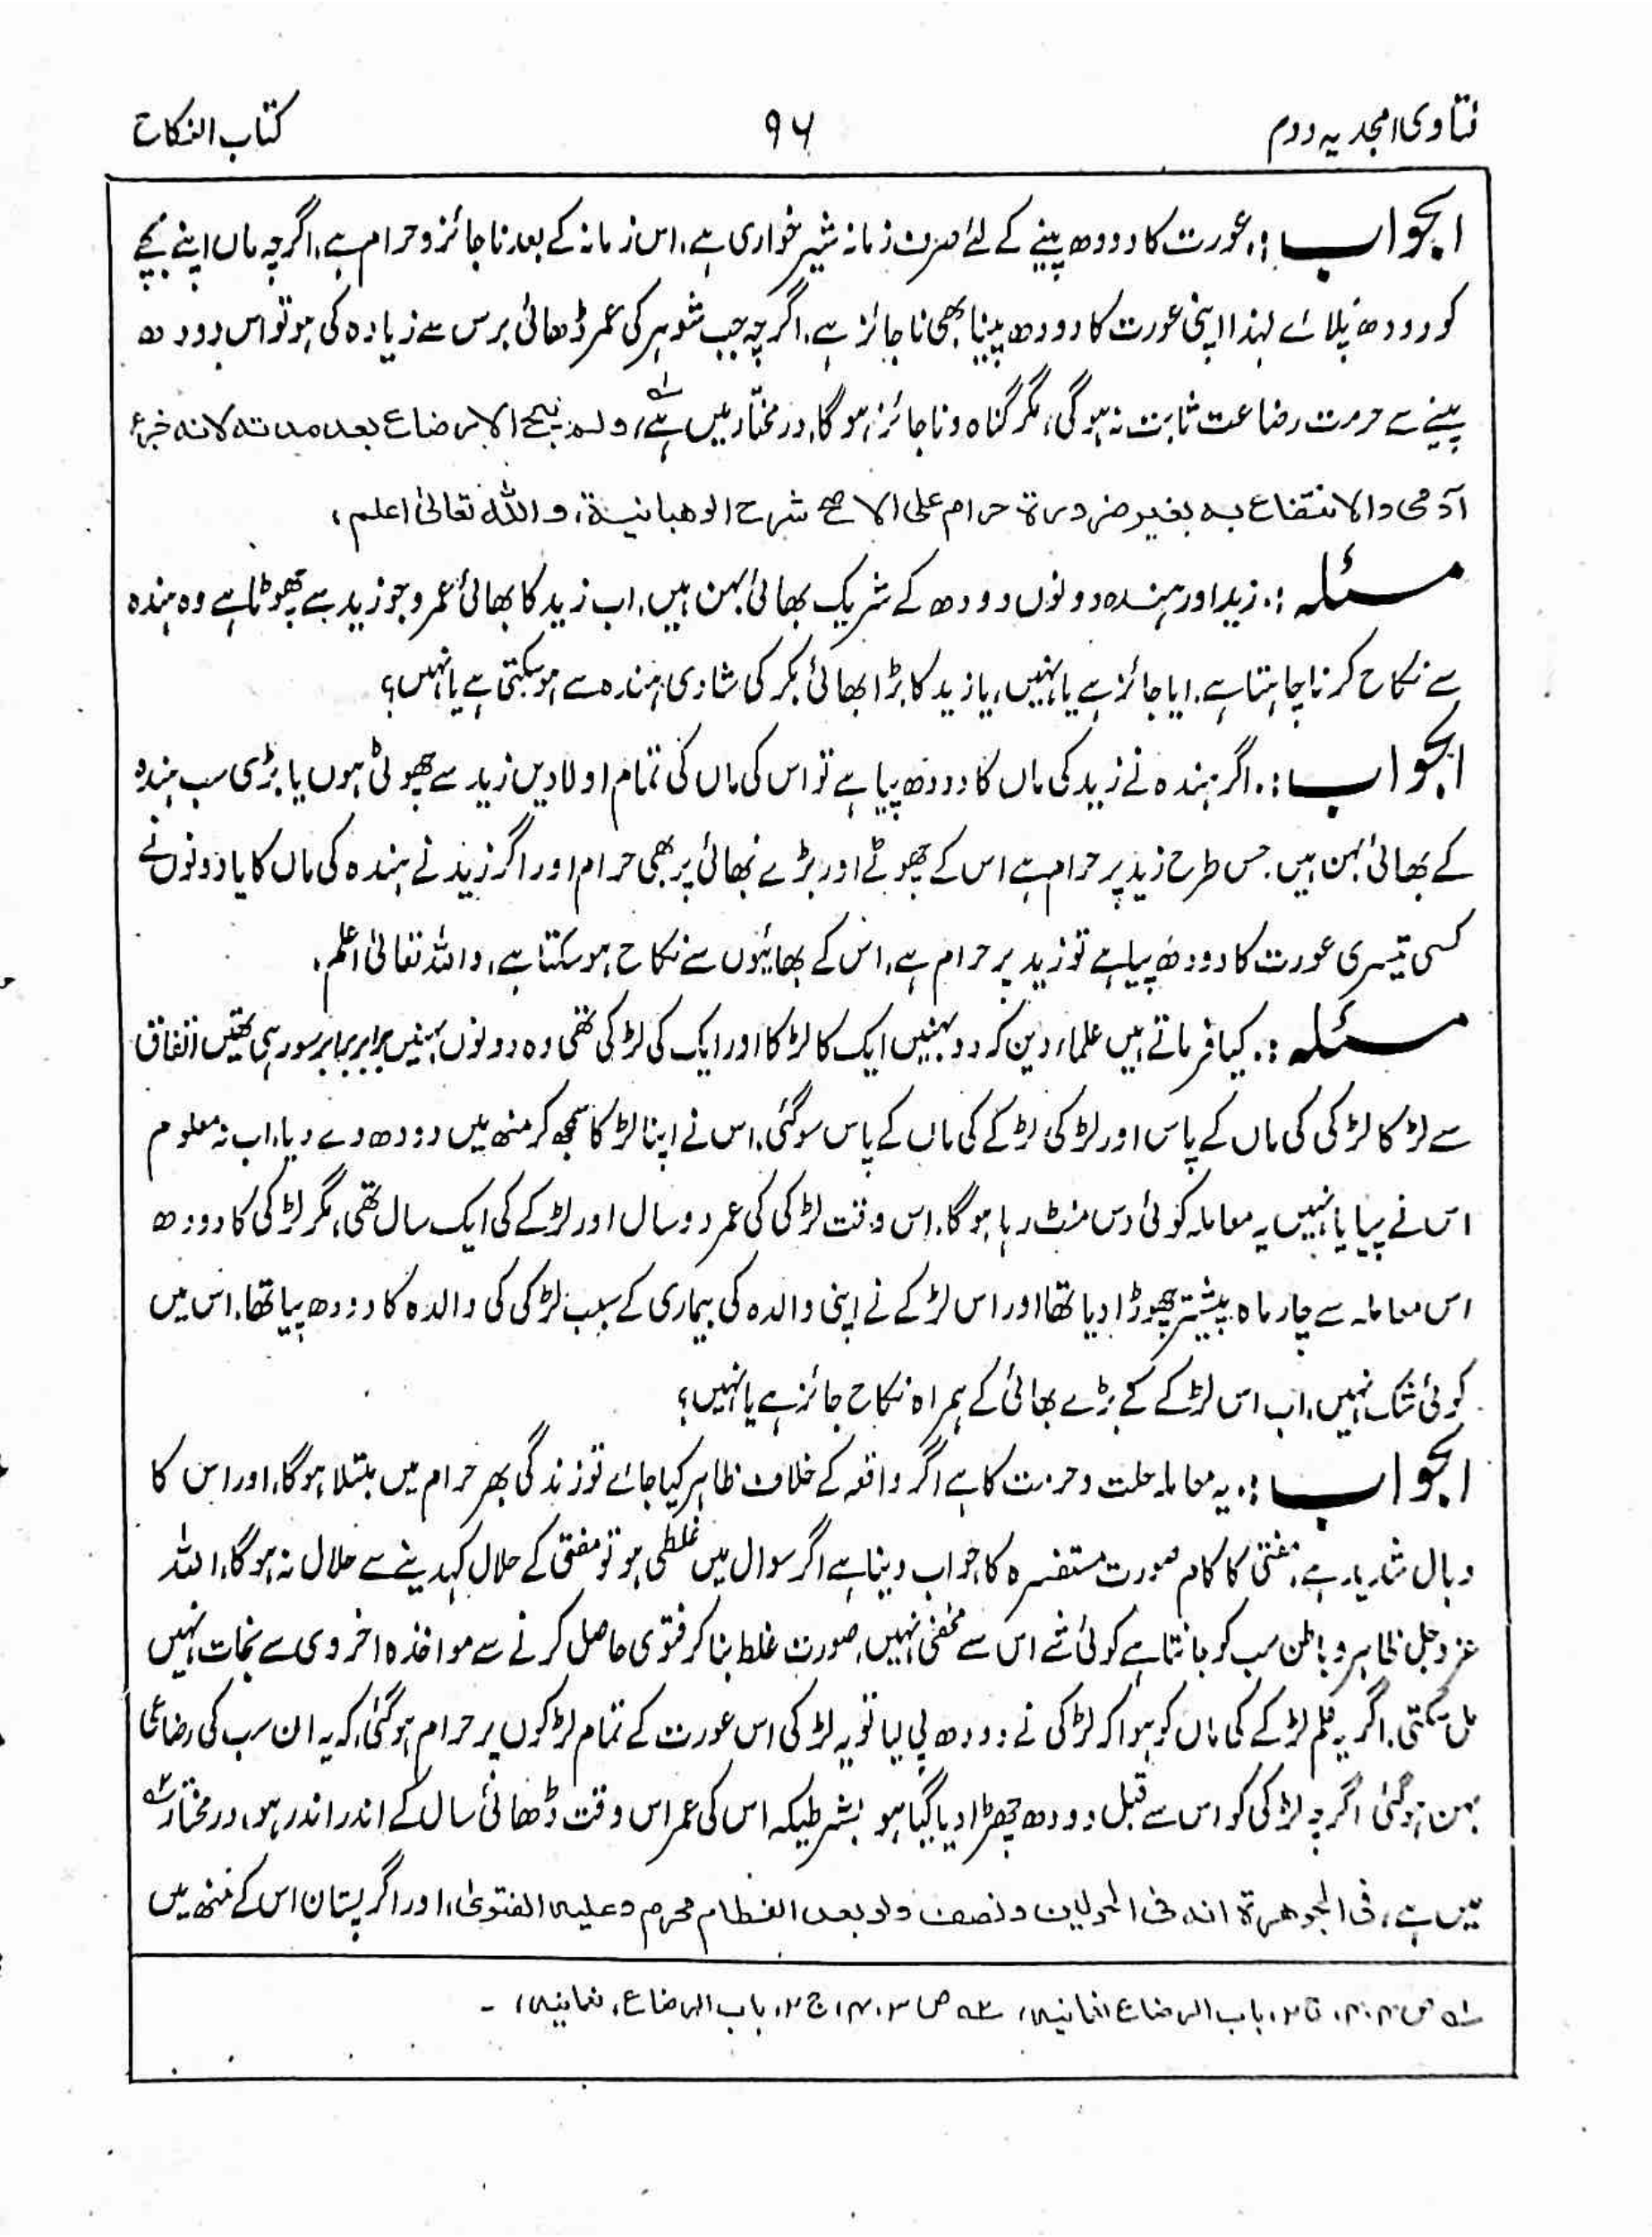 فتاوی امجدیہ دوم
۹۶
کتاب النکاح
الجواب :. عورت کا دودھ پینے کے لئے صرف زمانہ شیر خواری ہے، اس زمانہ کے بعد ناجائز و حرام ہے، اگرچہ ماں اپنے بچے
کو دودھ پلائے لہذا اپنی عورت کا دودھ پینا بھی ناجائز ہے. اگرچہ جب شوہر کی عمر ڈھائی برس سے زیادہ کی ہو تو اس دودھ
پینے سے حرمت رضاعت ثابت نہ ہوگی، مگر گناہ و ناجائز ہوگا، درمختار میں ہے، ولم یبح الارضاع بعد مدتہ لانہ جزء
آدمی والانتفاع بہ بغیر ضرورۃ حرام علی الاصح شرح الوھبانیۃ، واللہ تعالیٰ اعلم،
مسئلہ :. زید اور ہندہ دونوں دودھ کے شریک بھائی بہن ہیں، اب زید کا بھائی عمرو جو زید سے چھوٹا ہے وہ ہندہ
سے نکاح کرنا چاہتا ہے. ایا جائز ہے یا نہیں، یا زید کا بڑا بھائی بکر کی شادی ہندہ سے ہو سکتی ہے یا نہیں؟
الجواب :. اگر ہندہ نے زید کی ماں کا دودھ پیا ہے تو اس کی ماں کی تمام اولادیں زید سے چھوٹی ہوں یا بڑی سب ہندہ
کے بھائی بہن ہیں. جس طرح زید پر حرام ہے اس کے چھوٹے اور بڑے بھائی پر بھی حرام اور اگر زید نے ہندہ کی ماں کا یا دونوں نے
کسی تیسری عورت کا دودھ پیا ہے تو زید پر حرام ہے، اس کے بھائیوں سے نکاح ہو سکتا ہے، واللہ تعالیٰ اعلم.
مسئلہ :. کیا فرماتے ہیں علماء دین کہ دو بہنیں ایک کا لڑکا اور ایک کی لڑکی تھی وہ دونوں بہنیں برابر برابر سو رہی تھیں اتفاق
سے لڑکا لڑکی کی ماں کے پاس اور لڑکی لڑکے کی ماں کے پاس سو گئی. اس نے اپنا لڑکا سمجھ کر منھ میں دودھ دے دیا، اب نہ معلوم
اس نے پیا یا نہیں یہ معاملہ کوئی دس منٹ رہا ہوگا. اس وقت لڑکی کی عمر دو سال اور لڑکے کی ایک سال تھی، مگر لڑکی کا دودھ
اس معاملہ سے چار ماہ پیشتر چھوڑا دیا تھا اور اس لڑکے نے اپنی والدہ کی بیماری کے سبب لڑکی کی والدہ کا دودھ پیا تھا. اس میں
کوئی شک نہیں. اب اس لڑکے کے بڑے بھائی کے ہمراہ نکاح جائز ہے یا نہیں؟
الجواب :. یہ معاملہ حلت و حرمت کا ہے اگر واقعہ کے خلاف ظاہر کیا جائے تو زندگی بھر حرام میں مبتلا ہوگا، اور اس کا
وبال شدید ہے، مفتی کا کام صورت مستفسرہ کا جواب دینا ہے اگر سوال میں غلطی ہو تو مفتی کے حلال کہدینے سے حلال نہ ہوگا، اللہ
عزوجل ظاہر و باطن سب کو جانتا ہے کوئی شے اس سے مخفی نہیں. صورت غلط بنا کر فتوی حاصل کرنے سے مواخذہ اخروی سے نجات نہیں
مل سکتی. اگر یہ علم لڑکے کی ماں کو ہوا کہ لڑکی نے دودھ پی لیا تو یہ لڑکی اس عورت کے تمام لڑکوں پر حرام ہوگئی، کہ یہ ان سب کی رضاعی
بہن ہوگئی اگرچہ لڑکی کو اس سے قبل دودھ چھڑا دیا گیا ہو بشرطیکہ اس کی عمر اس وقت ڈھائی سال کے اندر اندر ہو، درمختار
میں ہے، فی الجوھرۃ انہ فی الحولین ونصف ولو بعد الفطام محرم وعلیہ الفتویٰ، اور اگر پستان اس کے منھ میں
باب الرضاع نعمانیہ، ص ۴۰۳، ج ۲، باب الرضاع، نعمانیہ، ۔